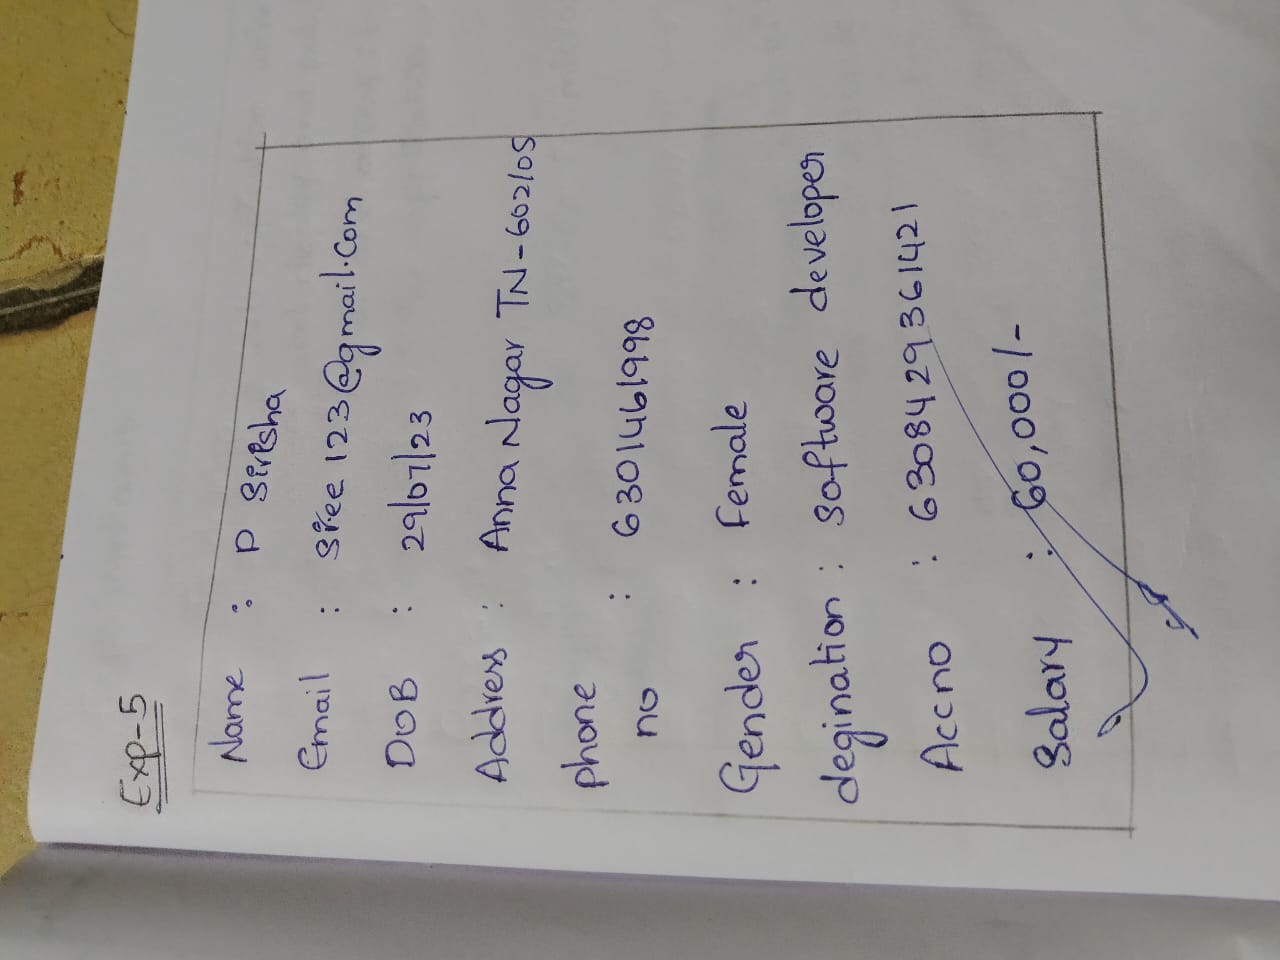 Exp-5
Name : P Sirisha
Email : Sree123@gmail.com
DOB : 29/07/23
Address : Anna Nagar TN-602105
phone no : 6301461998
Gender : Female
degination : Software developer
Accno : 6308429361421
Salary : 60,000/-